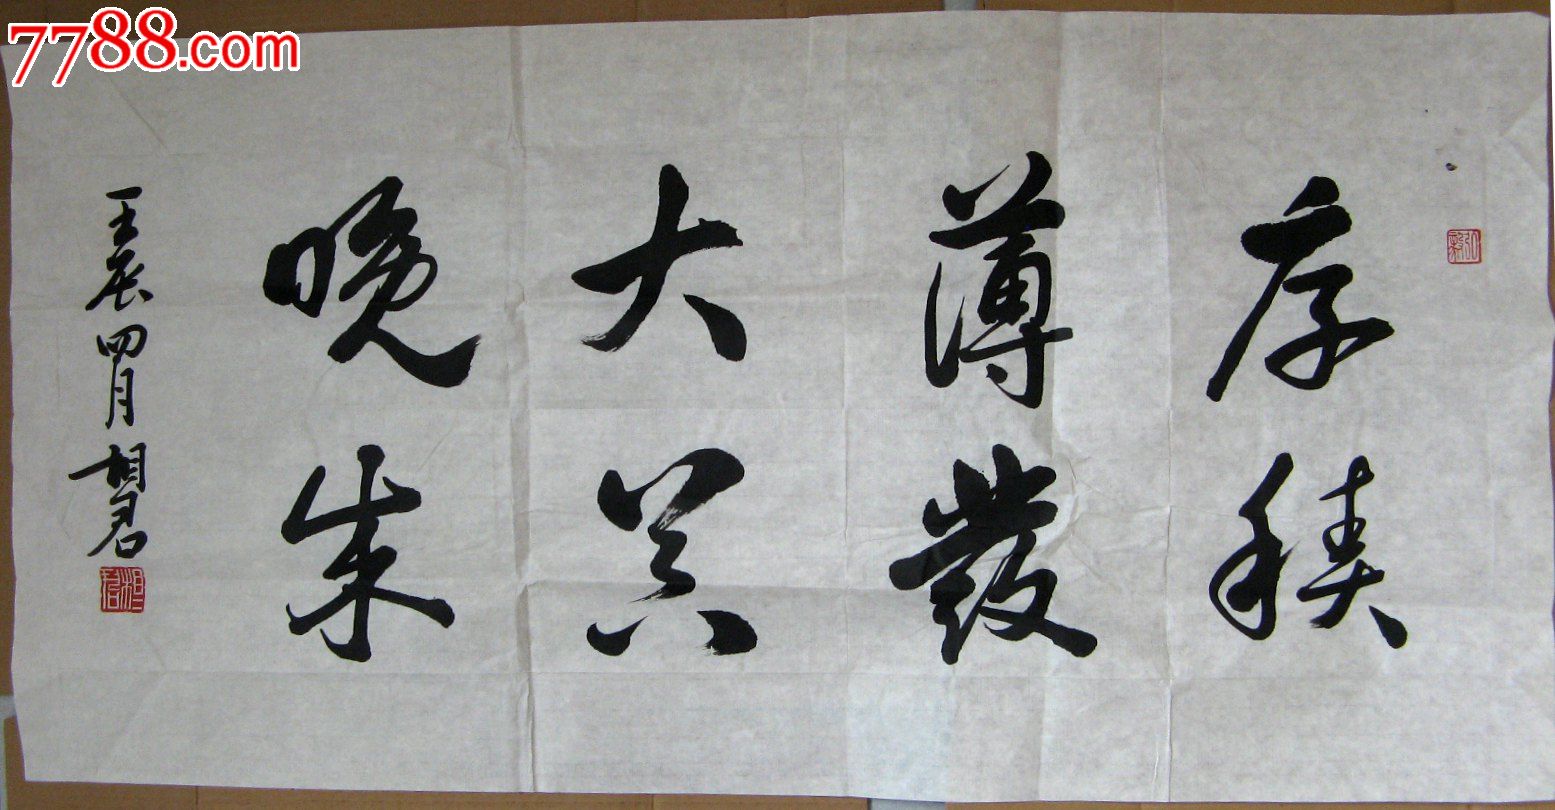 7788.com
厚積
薄發
大器
晚成
壬辰四月相君